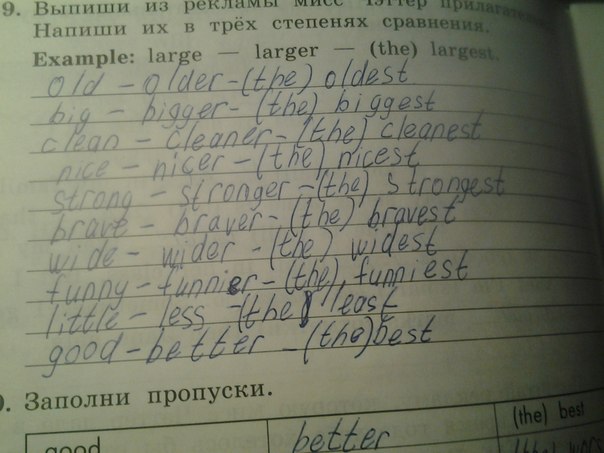 9. Выпиши из рекламы мисс Чэттер прилагател
Напиши их в трёх степенях сравнения.
Example: large — larger — (the) largest.
old – older – (the) oldest
big – bigger – (the) biggest
clean – cleaner – (the) cleanest
nice – nicer – (the) nicest
strong – stronger – (the) strongest
brave – braver – (the) bravest
wide – wider – (the) widest
funny – funnier – (the) funniest
little – less – (the) least
good – better – (the) best
0. Заполни пропуски.
good better (the) best